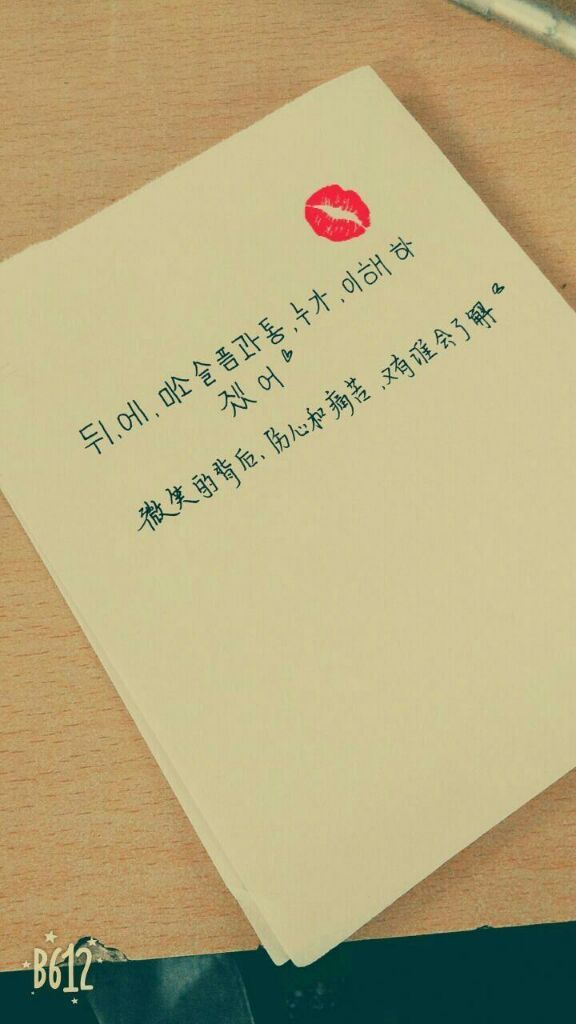 뒤,에,미소슬픔과통,누가,이해하
겠어。
微笑的背后、伤心和痛苦,又有谁会了解。
B612